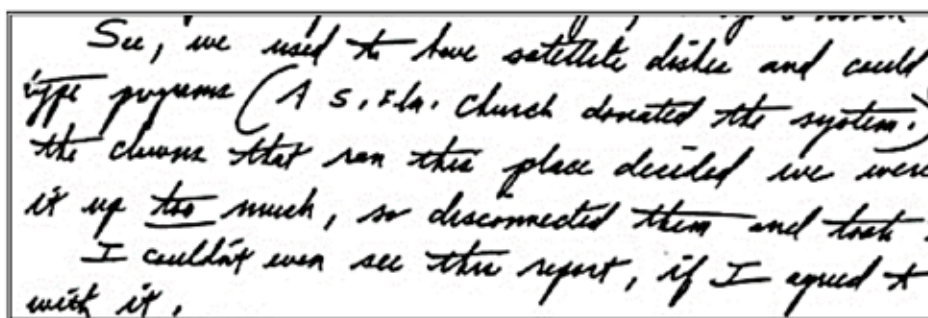 See, we used to have satellite dishes and could
type programs (A S. Fla. Church donated the system.)
the clowns that ran this place decided we were
it up too much, so disconnected them and took
I couldn't even see this report, if I agreed t
with it.